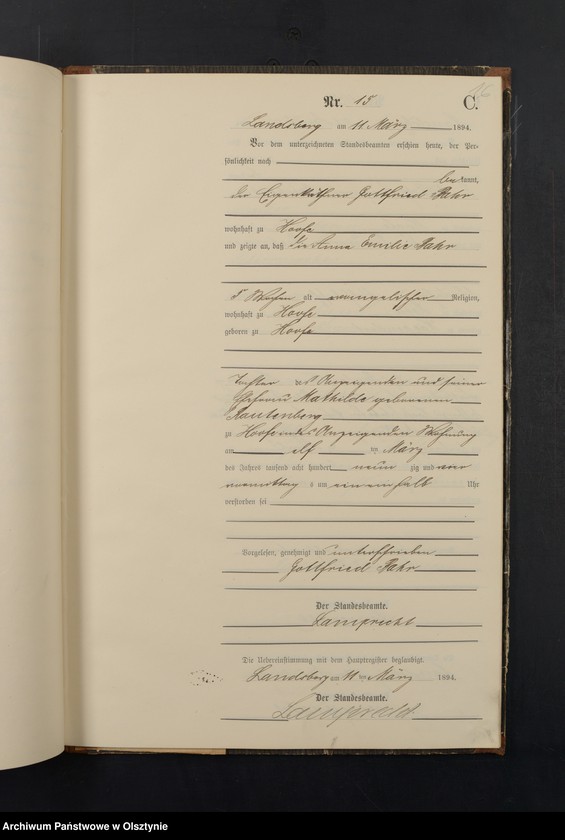 Nr. 15 C.
Landsberg am 11 März 1894.
Vor dem unterzeichneten Standesbeamten erschien heute, der Per-
sönlichkeit nach
bekannt,
der Eigenkäthner Gottfried
wohnhaft zu Hoofe
und zeigte an, daß die Anna Emilie
5 Wochen alt evangelischer Religion,
wohnhaft zu Hoofe
geboren zu Hoofe
Tochter des Anzeigenden und seiner
Ehefrau Mathilde geborenen
Rautenberg
zu Hoofe in des Anzeigenden Wohnung
am elf ten März
des Jahres tausend acht hundert neun zig und vier
vormittags um ein einhalb Uhr
verstorben sei
Vorgelesen, genehmigt und unterschrieben
Gottfried
Der Standesbeamte.
Lamprecht
Die Uebereinstimmung mit dem Hauptregister beglaubigt.
Landsberg am 11 ten März 1894.
Der Standesbeamte.
Archiwum Państwowe w Olsztynie